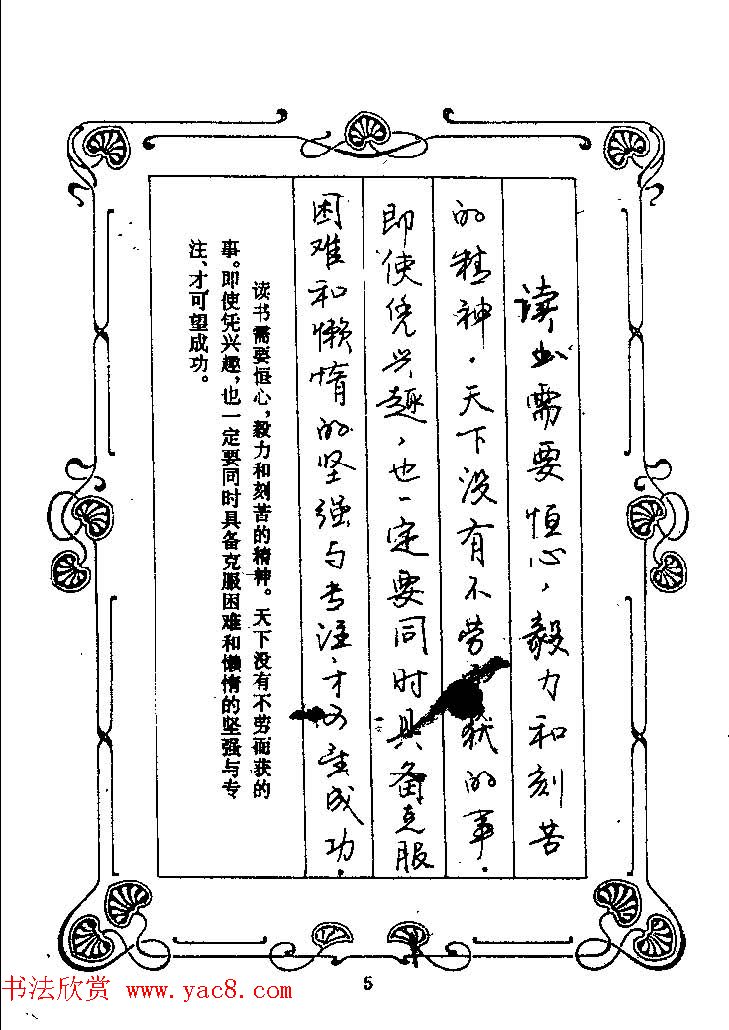 读书需要恒心，毅力和刻苦
的精神．天下没有不劳获的事．
即使凭兴趣，也一定要同时具备克服
困难和懒惰的坚强与专注、才可望成功．
读书需要恒心，毅力和刻苦的精神。天下没有不劳而获的
事。即使凭兴趣，也一定要同时具备克服困难和懒惰的坚强与专
注、才可望成功。
5
书法欣赏 www.yac8.com